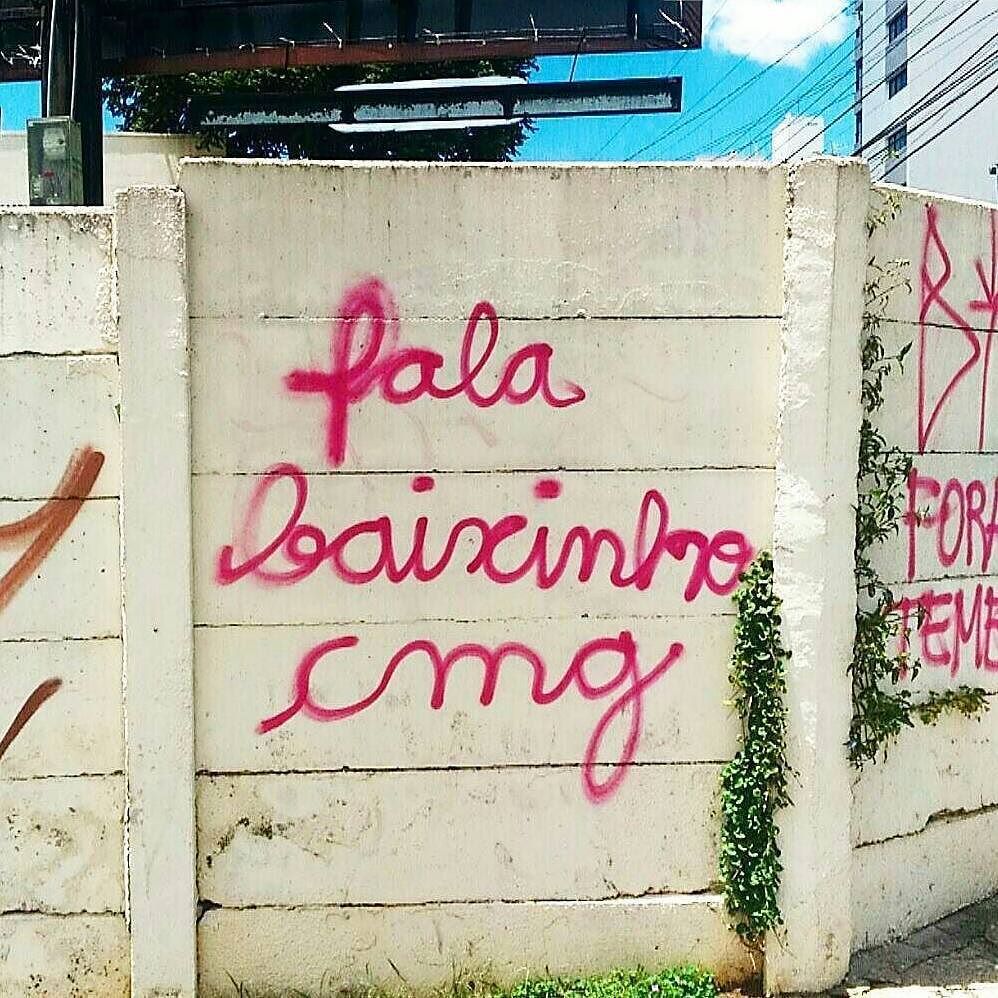 fala
baixinho
cmg
FORA
TEME